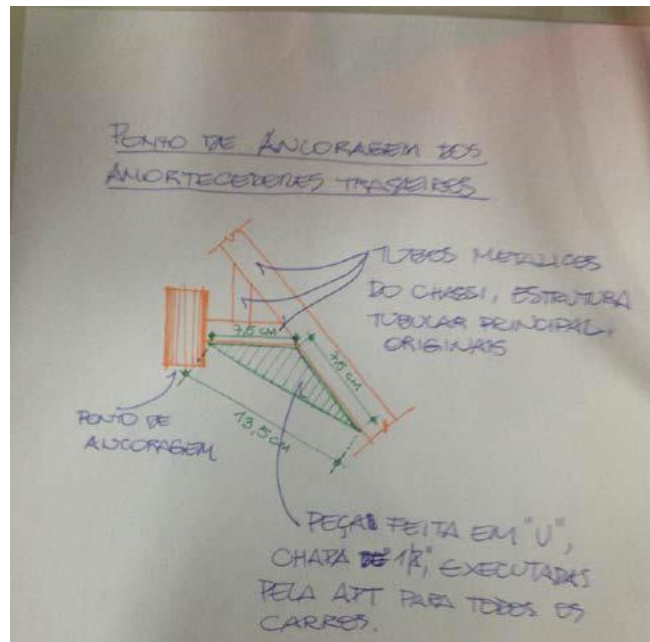 PONTO DE ANCORAGEM DOS
AMORTECEDORES TRASEIROS
TUBOS METALICOS
DO CHASSI, ESTRUTURA
TUBULAR PRINCIPAL,
ORIGINAIS
7,5 CM
7,5 CM
13,5 CM
PONTO DE
ANCORAGEM
PEÇA FEITA EM "U",
CHAPA DE 1/8", EXECUTADAS
PELA APT PARA TODOS OS
CARROS.